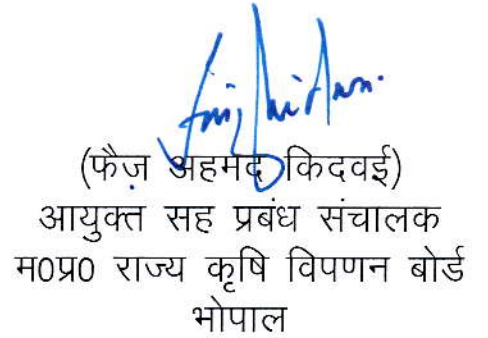 (फैज़ अहमद किदवई)
आयुक्त सह प्रबंध संचालक
म0प्र0 राज्य कृषि विपणन बोर्ड
भोपाल